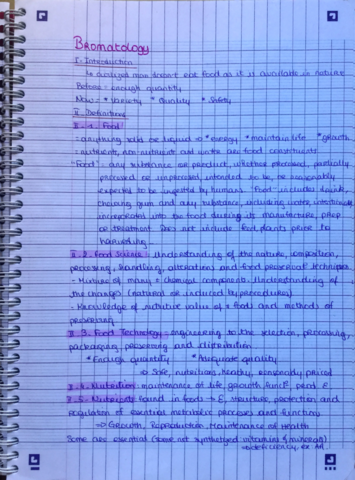 Bromatology
I - Introduction
↳ civilized man doesn't eat food as it is available in nature
Before = enough quantity
Now = * Variety * Quality * Safety
II - Definitions
II - 1 - Food
= anything solid or liquid ⇒ * energy * maintain life * growth
- nutrients, non-nutrients and water are food constituents
"Food" = any substance or product, whether processed, partially
processed or unprocessed, intended to be, or reasonably
expected to be ingested by humans. "Food" includes drink,
chewing gum and any substance, including water, intentionally
incorporated into the food during its manufacture, prep
or treatment. Does not include feed, plants prior to
harvesting.
II - 2 - Food Science: Understanding of the nature, composition,
processing, handling, alterations and food preservat° techniques
- Mixture of many ≠ chemical components. Understanding of
the changes (natural or induced by procedures)
- Knowledge of nutritive value of ≠ foods and methods of
preserving
II - 3 - Food Technology: engineering to the selection, processing,
packaging, preserving and distribution.
* Enough quantity * Adequate quality
⇒ Safe, nutritious, healthy, reasonably priced
II - 4 - Nutrition: maintenance of life, growth, funct° prod E
II - 5 - Nutrients found in foods → E, structure, protection and
regulation of essential metabolic processes and functions
⇒ Growth, Reproduction, Maintenance of Health
Some are essential (some not synthetized vitamins & minerals)
→ deficiency, ex